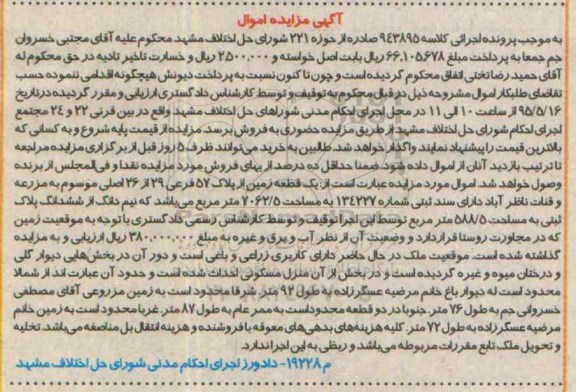 آگهی مزایده اموال
به موجب پرونده اجرائی کلاسه ۹۴۳۸۹۵ صادره از حوزه ۲۲۱ شورای حل اختلاف مشهد محکوم علیه آقای مجتبی خسروان
جم جمعا به پرداخت مبلغ ۶۶,۱۰۵,۶۷۸ ریال بابت اصل خواسته و ۲,۵۰۰,۰۰۰ ریال و خسارت تاخیر تادیه در حق محکوم له
آقای حمید رضا تختی اتفاق محکوم گردیده است و چون تا کنون نسبت به پرداخت دیونش هیچگونه اقدامی ننموده حسب
تقاضای طلبکار اموال مشروحه ذیل در قبال محکوم به توقیف و توسط کارشناس دادگستری ارزیابی و مقرر گردیده در تاریخ
۹۵/۵/۱۶ از ساعت ۱۰ الی ۱۱ در محل اجرای احکام مدنی شوراهای حل اختلاف مشهد واقع در بین قرنی ۲۲ و ۲۴ مجتمع
اجرای احکام شورای حل اختلاف مشهد از طریق مزایده حضوری به فروش برسد. مزایده از قیمت پایه شروع و به کسانی که
بالاترین قیمت را پیشنهاد نمایند واگذار خواهد شد. طالبین به خرید می‌توانند ظرف ۵ روز قبل از برگزاری مزایده مراجعه
تا ترتیب بازدید آنان از اموال داده شود ضمنا حداقل ده درصد از بهای فروش مورد مزایده نقدا و فی‌المجلس از برنده
وصول خواهد شد. اموال مورد مزایده عبارت است از: یک قطعه زمین از پلاک ۵۷ فرعی ۲۹ از ۳۶ اصلی موسوم به مزرعه
و قنات ناظر آباد دارای سند ثبتی شماره ۱۳۴۲۲۷ به مساحت ۷۰۶۲/۵ متر مربع می‌باشد که نیم دانگ از ششدانگ پلاک
ثبتی به مساحت ۵۸۸/۵ متر مربع توسط این اجرا توقیف و توسط کارشناس رسمی دادگستری با توجه به موقعیت زمین
که در مجاورت روستا قرار دارد و وضعیت آن از نظر آب و برق و غیره به مبلغ ۳۸۰,۰۰۰,۰۰۰ ریال ارزیابی و به مزایده
گذاشته شده است. موقعیت ملک در حال حاضر دارای کاربری زراعی و باغی است و دور آن در بخش‌هایی دیوار گلی
و درختان میوه و غیره گردیده است و در بخش از آن منزل مسکونی احداث شده است و حدود آن عبارت اند از شمالا
محدود است به دیوار باغ خانم مرضیه عسگرزاده به طول ۹۲ متر. شرقا محدود است به زمین مزروعی آقای مصطفی
خسروانی جم به طول ۷۶ متر. جنوبا در دو قطعه محدود است به ممر عام به طول ۸۷ متر. غربا محدود است به زمین خانم
مرضیه عسگرزاده به طول ۷۲ متر. کلیه هزینه‌های بدهی‌های معوقه با فروشنده و هزینه انتقال بل مناصفه می‌باشد. تخلیه
و تحویل ملک تابع مقررات مربوطه می‌باشد و ربطی به این اجرا ندارد.
م ۱۹۲۲۸- دادورز اجرای احکام مدنی شورای حل اختلاف مشهد